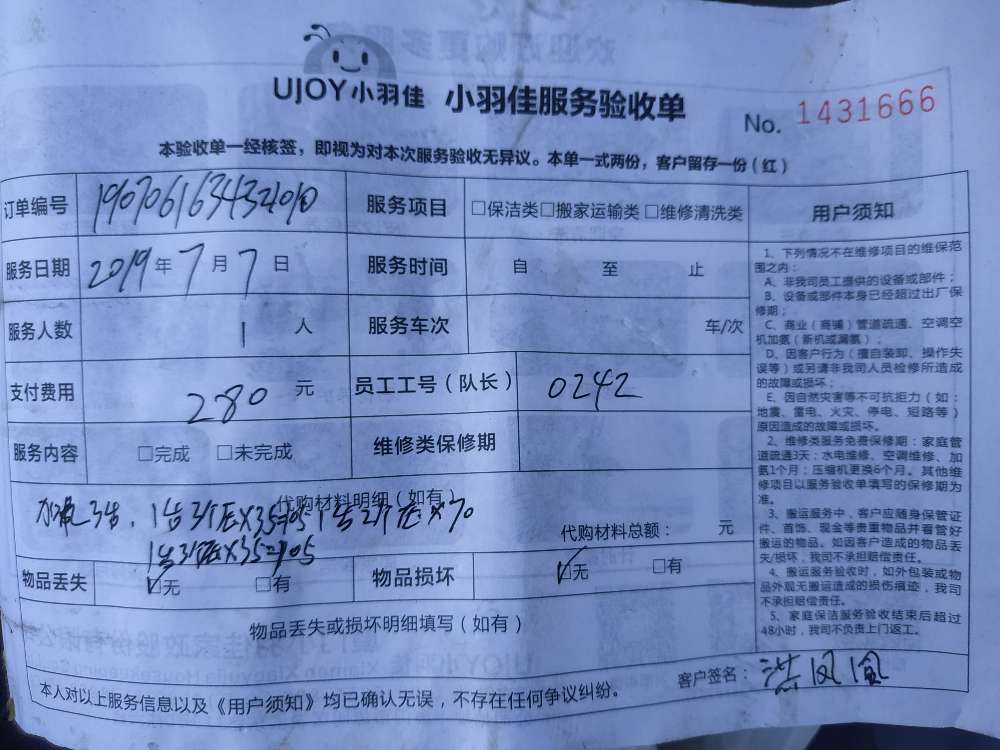 UJOY小羽佳 小羽佳服务验收单
No. 1431666
本验收单一经核签，即视为对本次服务验收无异议。本单一式两份，客户留存一份（红）
订单编号
服务项目 □保洁类□搬家运输类□维修清洗类
服务日期 2019年7月7日
服务时间 自 至 止
服务人数 1 人
服务车次 车/次
支付费用 280 元
员工工号（队长） 0242
服务内容 □完成 □未完成
维修类保修期
代购材料明细（如有）
1台3个压×35=105 1台2个压×70
1台3个压×35=105
代购材料总额： 元
物品丢失 ☑无 □有
物品损坏 ☑无 □有
物品丢失或损坏明细填写（如有）
本人对以上服务信息以及《用户须知》均已确认无误，不存在任何争议纠纷。
客户签名：洪凤凰
用户须知
1、下列情况不在维修项目的维保范
围之内：
A、非我司员工提供的设备或部件；
B、设备或部件本身已经超过出厂保
修期；
C、商业（商铺）管道疏通、空调空
机加氨（新机或漏氨）；
D、因客户行为（擅自装卸、操作失
误等）或另请非我司人员检修所造成
的故障或损坏；
E、因自然灾害等不可抗拒力（如：
地震、雷电、火灾、停电、短路等）
原因造成的故障或损坏。
2、维修类服务免费保修期：家庭管
道疏通3天；水电维修、空调维修、加
氨1个月；压缩机更换6个月。其他维
修项目以服务验收单填写的保修期为
准。
3、搬运服务中，客户应随身保管证
件、首饰、现金等贵重物品并看管好
搬运的物品。如因客户造成的物品丢
失/损坏，我司不承担赔偿责任。
4、搬运服务验收时，如外包装或物
品外观无搬运造成的损伤痕迹，我司
不承担赔偿责任。
5、家庭保洁服务验收结束后超过
48小时，我司不负责上门返工。